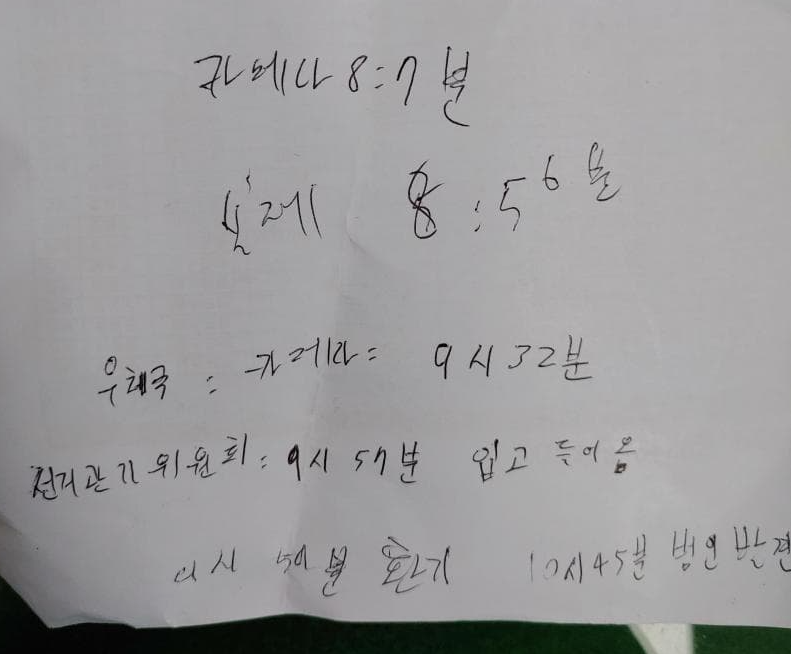 카메라 8:7분
실제 8:56분
우체국 : 카메라: 9시 32분
선거관리위원회: 9시 57분 입고 들어옴
9시 59분 환기 10시45분 범인 발견